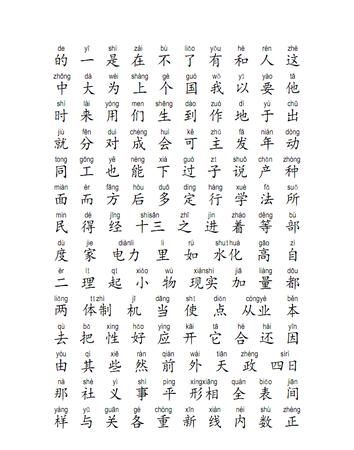 de yī shì zài bù liǎo yǒu hé rén zhè
的 一 是 在 不 了 有 和 人 这
zhōng dà wéi shàng gè guó wǒ yǐ yào tā
中 大 为 上 个 国 我 以 要 他
shí lái yòng men shēng dào zuò dì yú chū
时 来 用 们 生 到 作 地 于 出
jiù fēn duì chéng huì kě zhǔ fā nián dòng
就 分 对 成 会 可 主 发 年 动
tóng gōng yě néng xià guò zǐ shuō chǎn zhǒng
同 工 也 能 下 过 子 说 产 种
miàn ér fāng hòu duō dìng háng xué fǎ suǒ
面 而 方 后 多 定 行 学 法 所
mín dé jīng shísān zhī jìn zhe děng bù
民 得 经 十三 之 进 着 等 部
dù jiā diànlì lǐ rú shuǐhuà gāo zì
度 家 电力 里 如 水化 高 自
èr lǐ qǐ xiǎo wù xiànshí jiā liàng dōu
二 理 起 小 物 现实 加 量 都
liǎng tǐzhì jī dāng shǐ diǎn cóngyè běn
两 体制 机 当 使 点 从业 本
qù bǎ xìng hǎo yīng kāi tā hé hái yīn
去 把 性 好 应 开 它 合 还 因
yóu qí xiē rán qián wài tiān zhèng sìrì
由 其 些 然 前 外 天 政 四日
nà shè yì shì píng xíngxiāng quán biǎo jiān
那 社 义 事 平 形相 全 表 间
yàng yǔ guān gè chóng xīn xiàn nèi shù zhèng
样 与 关 各 重 新 线 内 数 正